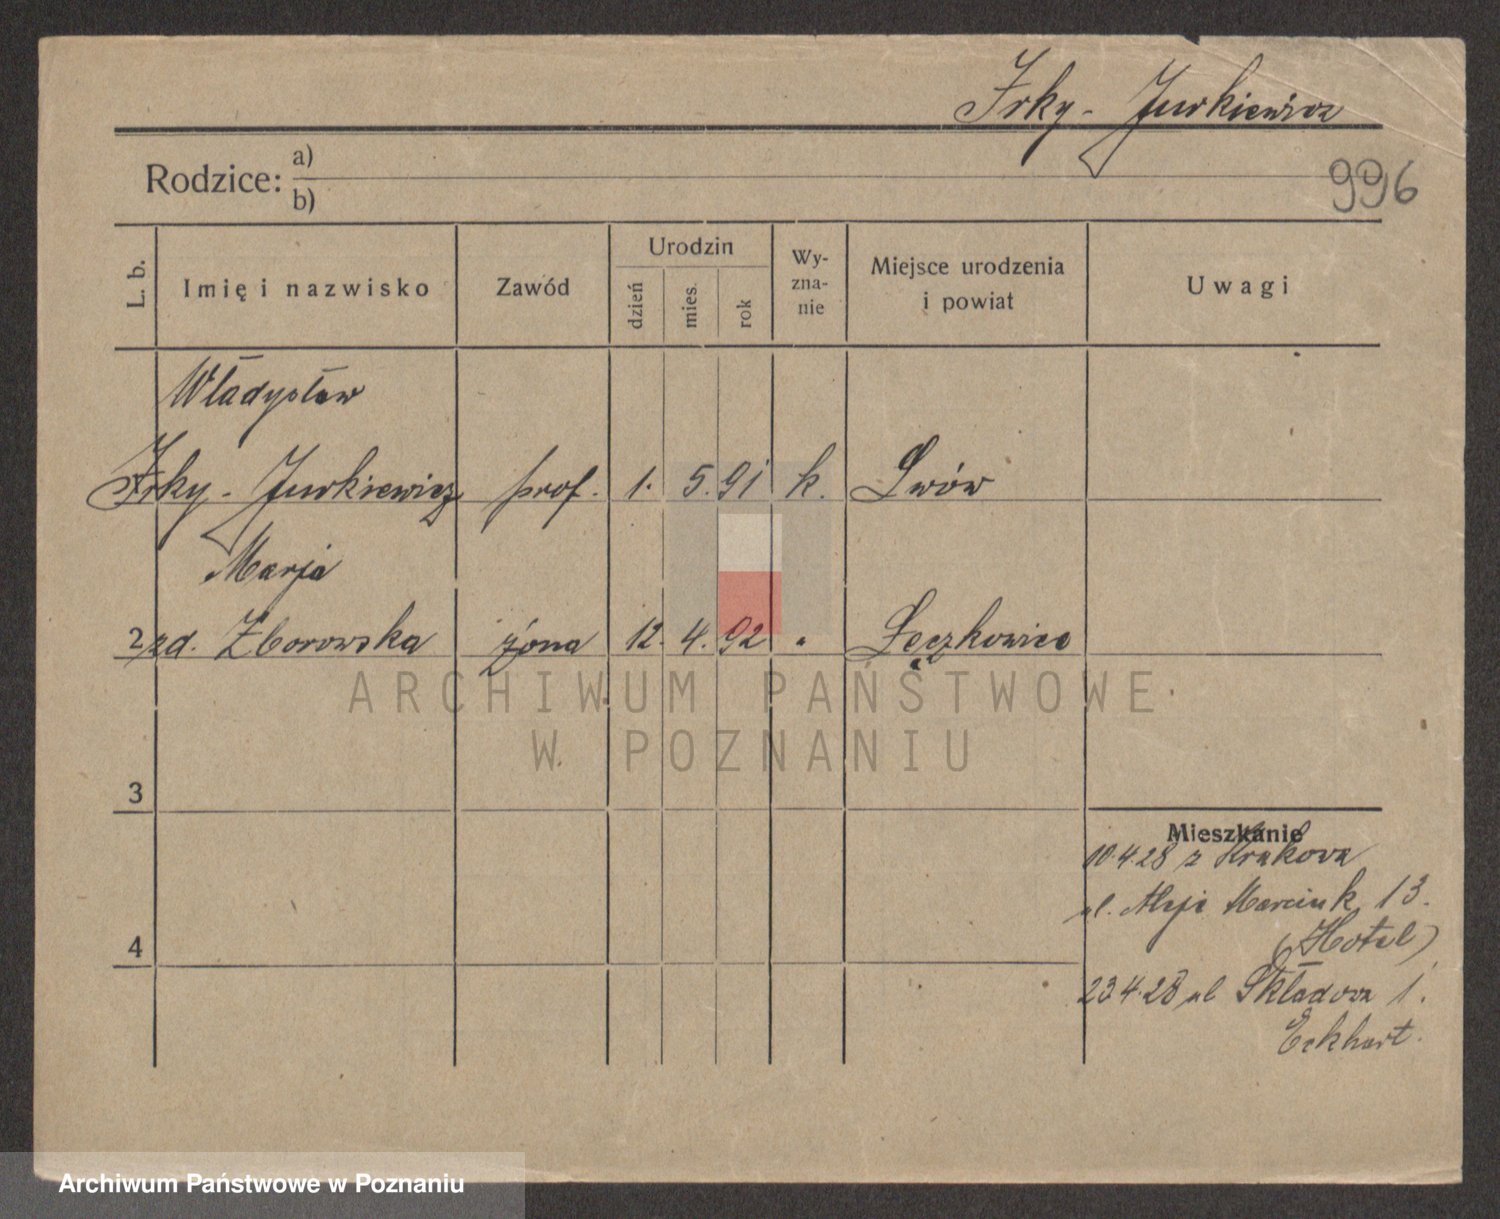 Irky - Jurkiewicz
Rodzice:
a)
b)
996
L. b.
Imię i nazwisko
Zawód
Urodzin
dzień
mies.
rok
Wy-
zna-
nie
Miejsce urodzenia
i powiat
Uwagi
Władysław
Irky - Jurkiewicz prof. 1. 5. 91 k. Lwów
Marja
2 zd. Zborowska żona 12. 4. 92 " Łęczkowice
ARCHIWUM PAŃSTWOWE
W POZNANIU
3
Mieszkanie
10.4.28 z Krakowa
ul. Aleje Marcink. 13.
(Hotel)
4
23.4.28 ul Składowa 1.
Eckhart.
Archiwum Państwowe w Poznaniu